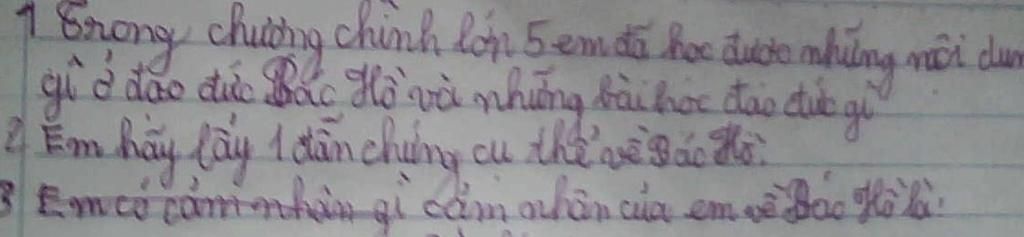 1 Trong chương chình lớn 5 em đã học được những nôi dun
gì ở đão đức Bác Hồ và những bài học đạo đức gì
2 Em hãy lấy 1 dẫn chứng cụ thể về Bác Hồ.
3 Em có cảm nhận gì cảm nhân của em về Bác Hồ là: